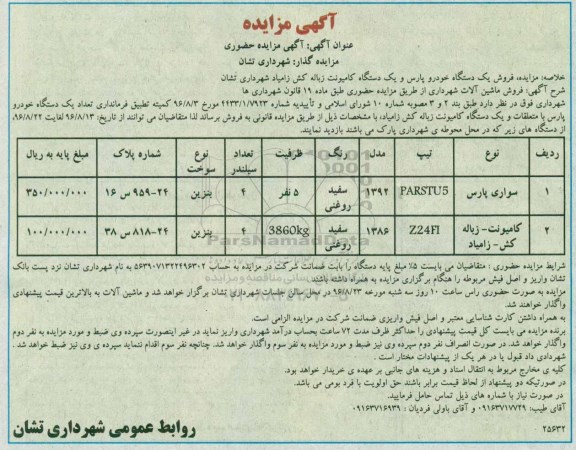 آگهی مزایده
عنوان آگهی: آگهی مزایده حضوری
مزایده گذار: شهرداری تشان
خلاصه: مزایده، فروش یک دستگاه خودرو پارس و یک دستگاه کامیونت زباله کش زامیاد شهرداری تشان
شرح آگهی: فروش ماشین آلات شهرداری از طریق مزایده حضوری طبق ماده ۱۹ قانون شهرداری ها
شهرداری فوق در نظر دارد طبق بند ۲ و ۳ مصوبه شماره ۱۰ شورای اسلامی و تأییدیه شماره ۲۴۳۳/۱/۷۹۲۳ مورخ ۹۶/۸/۳ کمیته تطبیق فرمانداری تعداد یک دستگاه خودرو
پارس با متعلقات و یک دستگاه کامیونت زباله کش زامیاد، با مشخصات ذیل از طریق مزایده قانونی به فروش برساند لذا متقاضیان می توانند از تاریخ: ۹۶/۸/۱۳ لغایت ۹۶/۸/۲۲،
از دستگاه های زیر که در محل محوطه ی شهرداری پارک می باشند بازدید نمایند.
ردیف نوع تیپ مدل رنگ ظرفیت تعداد سیلندر نوع سوخت شماره پلاک مبلغ پایه به ریال
۱ سواری پارس PARSTU5 ۱۳۹۲ سفید روغنی ۵ نفر ۴ بنزین ۲۴-۹۵۹ س ۱۶ ۳۵۰/۰۰۰/۰۰۰
۲ کامیونت-زباله کش-زامیاد Z24FI ۱۳۸۶ سفید روغنی 3860kg ۴ بنزین ۲۴-۸۱۸ س ۳۸ ۱۰۰/۰۰۰/۰۰۰
شرایط مزایده حضوری: متقاضیان می بایست ۵٪ مبلغ پایه دستگاه را بابت ضمانت شرکت در مزایده به حساب ۵۶۳۹۰۷۱۳۲۲۴۹۶۳۰۲ به نام شهرداری تشان نزد پست بانک
تشان واریز و اصل فیش مربوطه را هنگام برگزاری مزایده به همراه داشته باشند.
مزایده به صورت حضوری راس ساعت ۱۰ روز سه شنبه مورخه ۹۶/۸/۲۳ در محل سالن جلسات شهرداری تشان برگزار خواهد شد و ماشین آلات به بالاترین قیمت پیشنهادی
واگذار خواهند شد.
به همراه داشتن کارت شناسایی معتبر و اصل فیش واریزی ضمانت شرکت در مزایده الزامی است.
برنده مزایده می بایست کل قیمت پیشنهادی را حداکثر ظرف مدت ۷۲ ساعت بحساب درآمد شهرداری واریز نماید در غیر اینصورت سپرده وی ضبط و مورد مزایده به نفر دوم
واگذار خواهد شد. در صورت انصراف نفر دوم سپرده وی نیز ضبط و مورد مزایده به نفر سوم واگذار خواهد شد. چنانچه نفر سوم اقدام ننماید سپرده ی وی نیز ضبط خواهد شد.
شهرداری داد قبول یا در هر یک از پیشنهادات مختار است.
کلیه ی مخارج مربوط به انتقال اسناد و هزینه های جانبی بر عهده ی خریدار خواهد بود.
در صورتیکه دو پیشنهاد از لحاظ قیمت برابر باشند حق اولویت با فرد بومی می باشد.
در صورت نیاز با شماره های ذیل تماس حامل فرمایید.
آقای طیب: ۰۹۱۶۳۷۱۷۷۲۹ و آقای باولی فردیان: ۰۹۱۶۳۷۱۶۹۳۹
۲۵۶۳۲
روابط عمومی شهرداری تشان
ParsNamadData